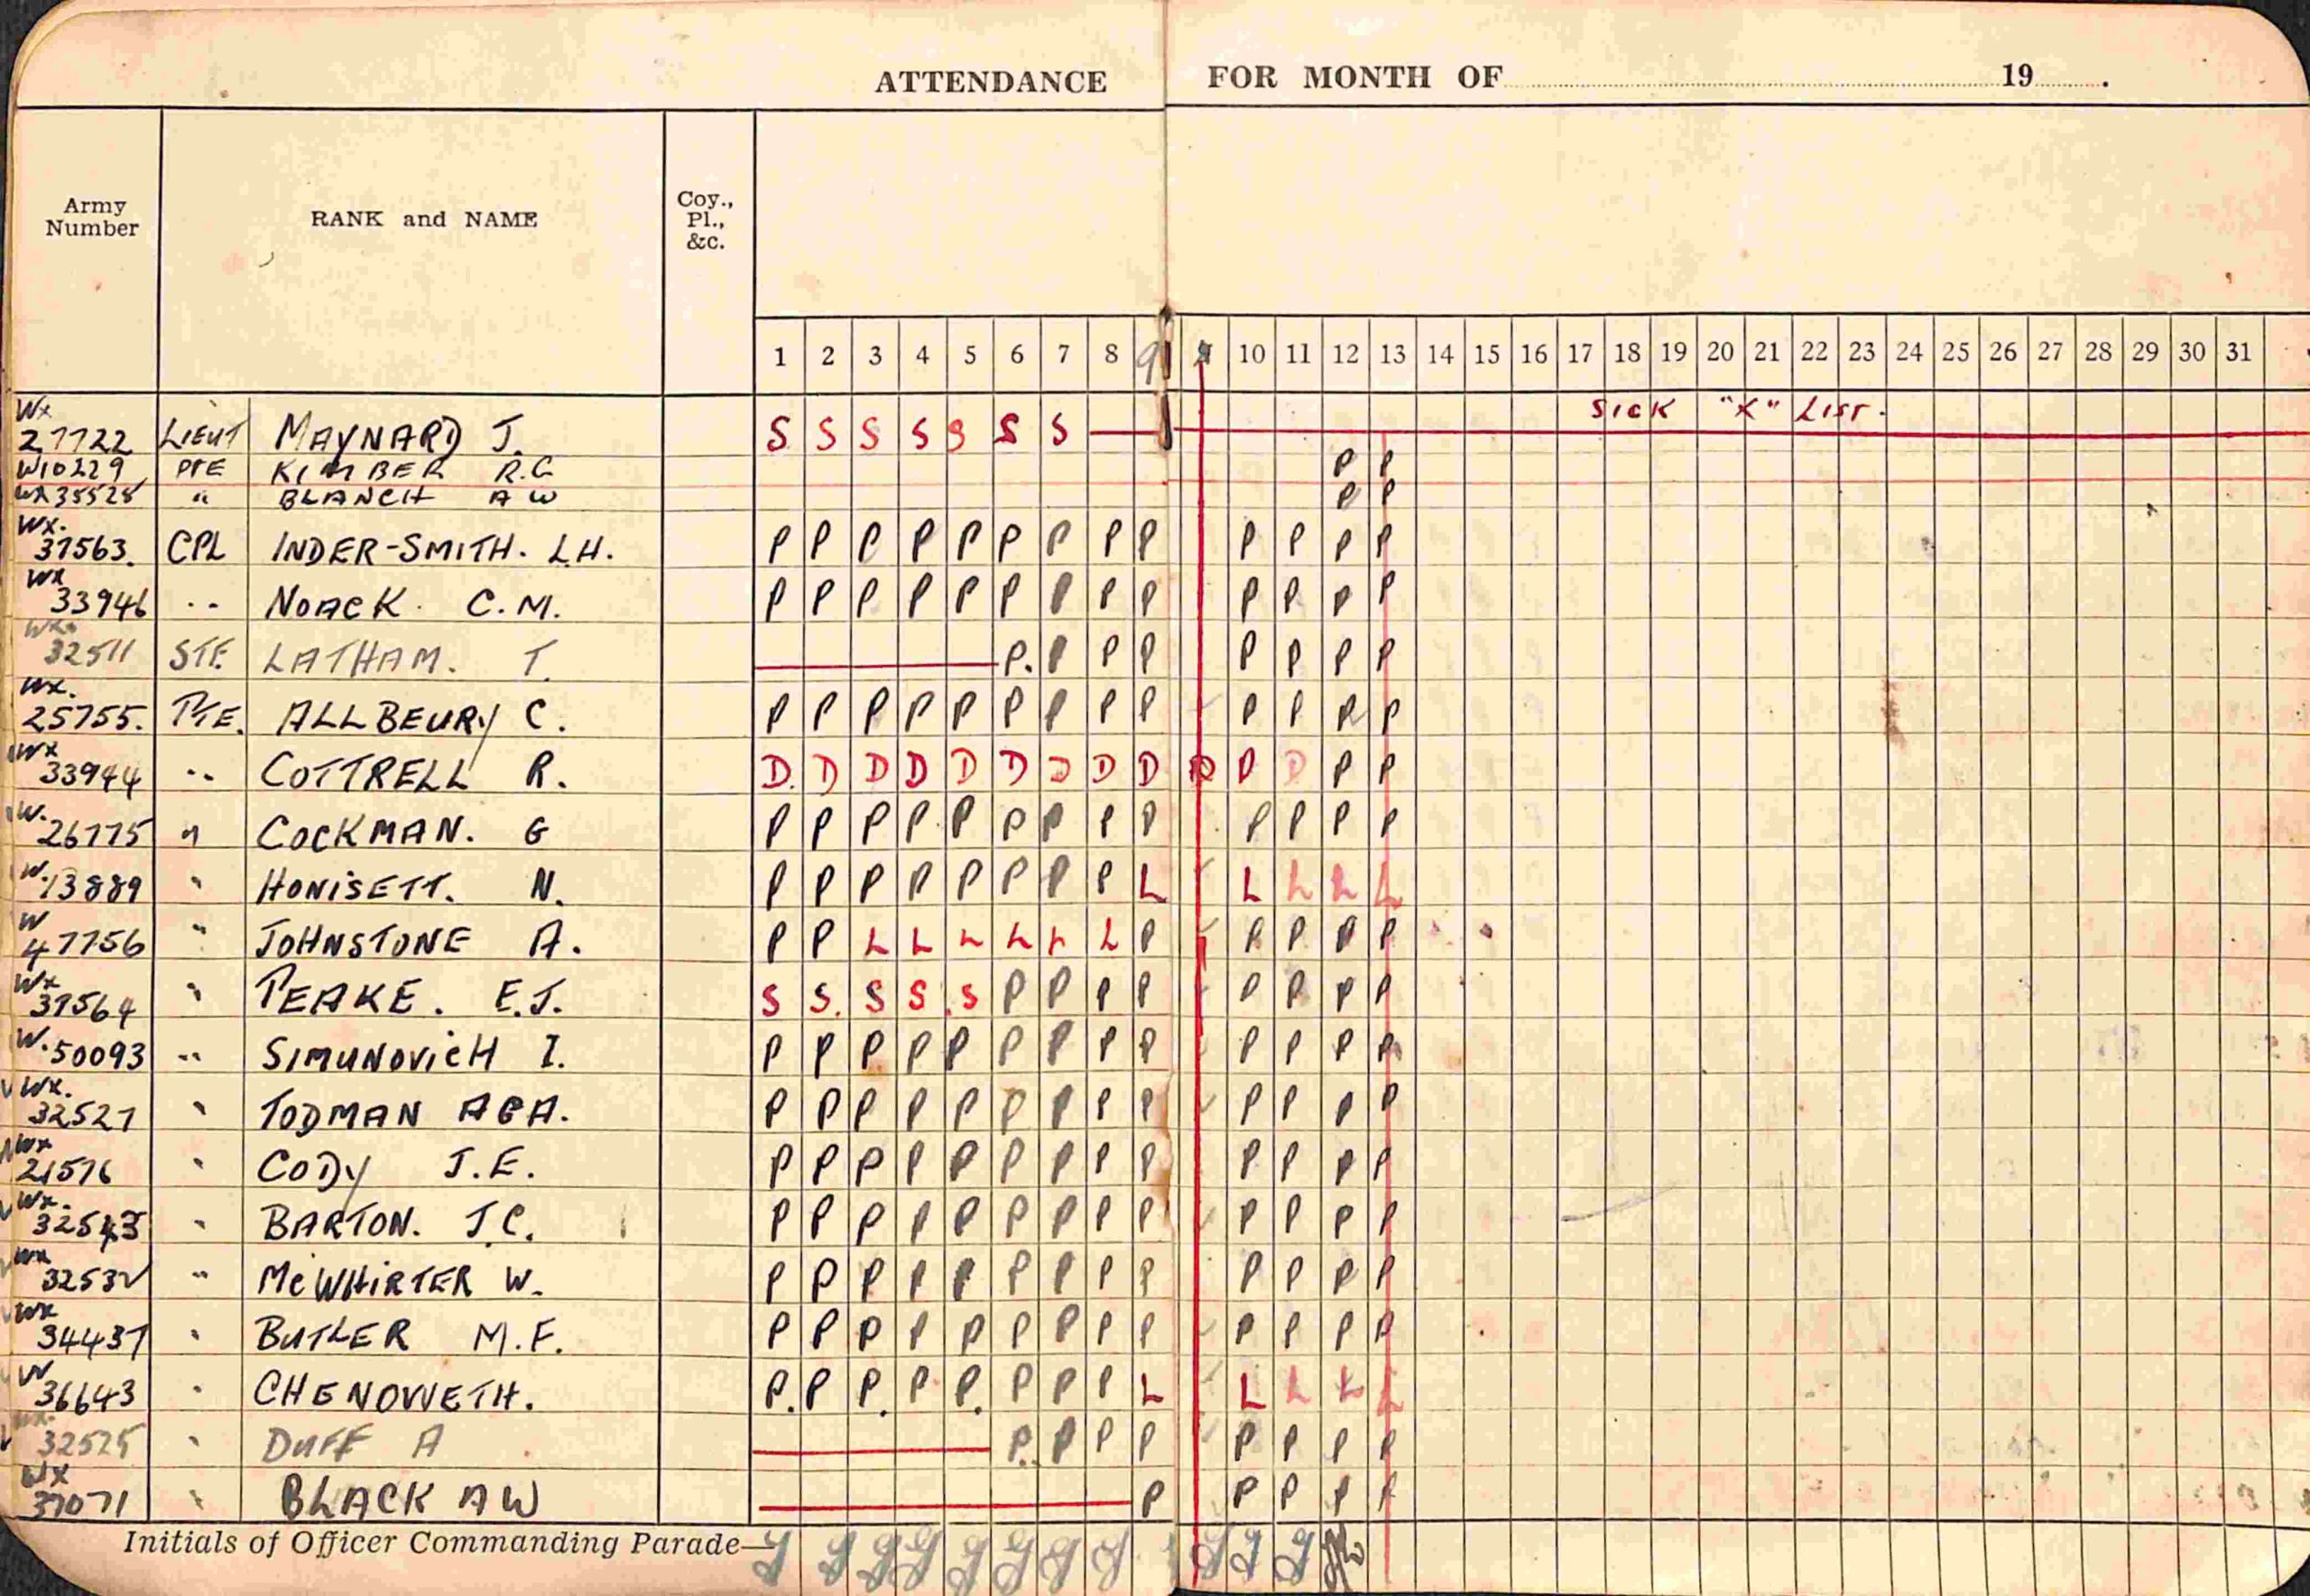 ATTENDANCE FOR MONTH OF 19 .
Army Number RANK and NAME Coy., Pl., &c.
1 2 3 4 5 6 7 8 9 10 11 12 13 14 15 16 17 18 19 20 21 22 23 24 25 26 27 28 29 30 31
SICK "X" LIST.
WX 27722 LIEUT MAYNARD J. S S S S S S S
W10229 PTE KIMBER R.G P P
WX35528 " BLANCH A W P P
WX. 37563. CPL INDER-SMITH. L.H. P P P P P P P P P P P P P
WX 33946 .. NOACK. C.M. P P P P P P P P P P P P P
WX. 32511 STE. LATHAM. T. P. P P P P P P P
WX. 25755. PTE. ALLBEURY C. P P P P P P P P P P P P P
WX 33944 .. COTTRELL R. D. D D D D D D D D D D D P P
W. 26775 " COCKMAN. G P P P P P P P P P P P P P
W. 13889 " HONISETT. N. P P P P P P P P L L L L L
W 47756 " JOHNSTONE A. P P L L L L L L P P P P P
WX 37564 " PEAKE. E.J. S S. S S S P P P P P P P P
W. 50093 .. SIMUNOVICH I. P P P P P P P P P P P P P
WX. 32527 " TODMAN A G A. P P P P P P P P P P P P P
WX 21576 " CODY J.E. P P P P P P P P P P P P P
WX. 32543 " BARTON. J.C. P P P P P P P P P P P P P
WX 32532 " McWHIRTER W. P P P P P P P P P P P P P
WX 34437 " BUTLER M.F. P P P P P P P P P P P P P
W 36643 " CHENOWETH. P. P P. P P. P P P L L L L L
WX. 32525 " DUFF A P. P P P P P P P
WX 37071 " BLACK A W P P P P P
Initials of Officer Commanding Parade—